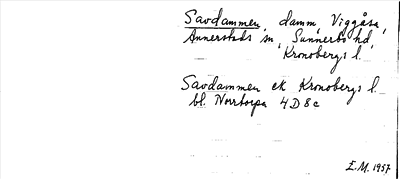 Savdammen, damm, Viggåsa,
Annerstads sn, Sunnerbo hd,
Kronobergs l.
Savdammen ek Kronobergs l.
bl. Norrtorpa 4D8c
E.M. 1957